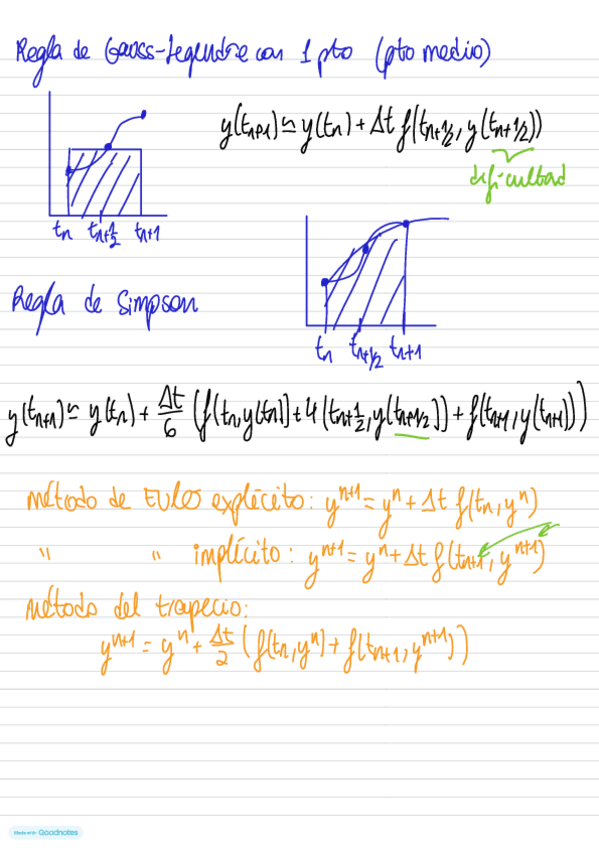 Regla de Gauss-Legendre con 1 pto (pto medio)
y(tn+1) ≃ y(tn) + Δt f(tn+1/2, y(tn+1/2))
dificultad
tn tn+1/2 tn+1
Regla de Simpson
tn tn+1/2 tn+1
y(tn+1) ≃ y(tn) + Δt/6 (f(tn, y(tn)) + 4(tn+1/2, y(tn+1/2)) + f(tn+1, y(tn+1)))
Método de Euler explícito: y^n+1 = y^n + Δt f(tn, y^n)
" " implícito: y^n+1 = y^n + Δt f(tn+1, y^n+1)
Método del trapecio:
y^n+1 = y^n + Δt/2 (f(tn, y^n) + f(tn+1, y^n+1))
Made with Goodnotes